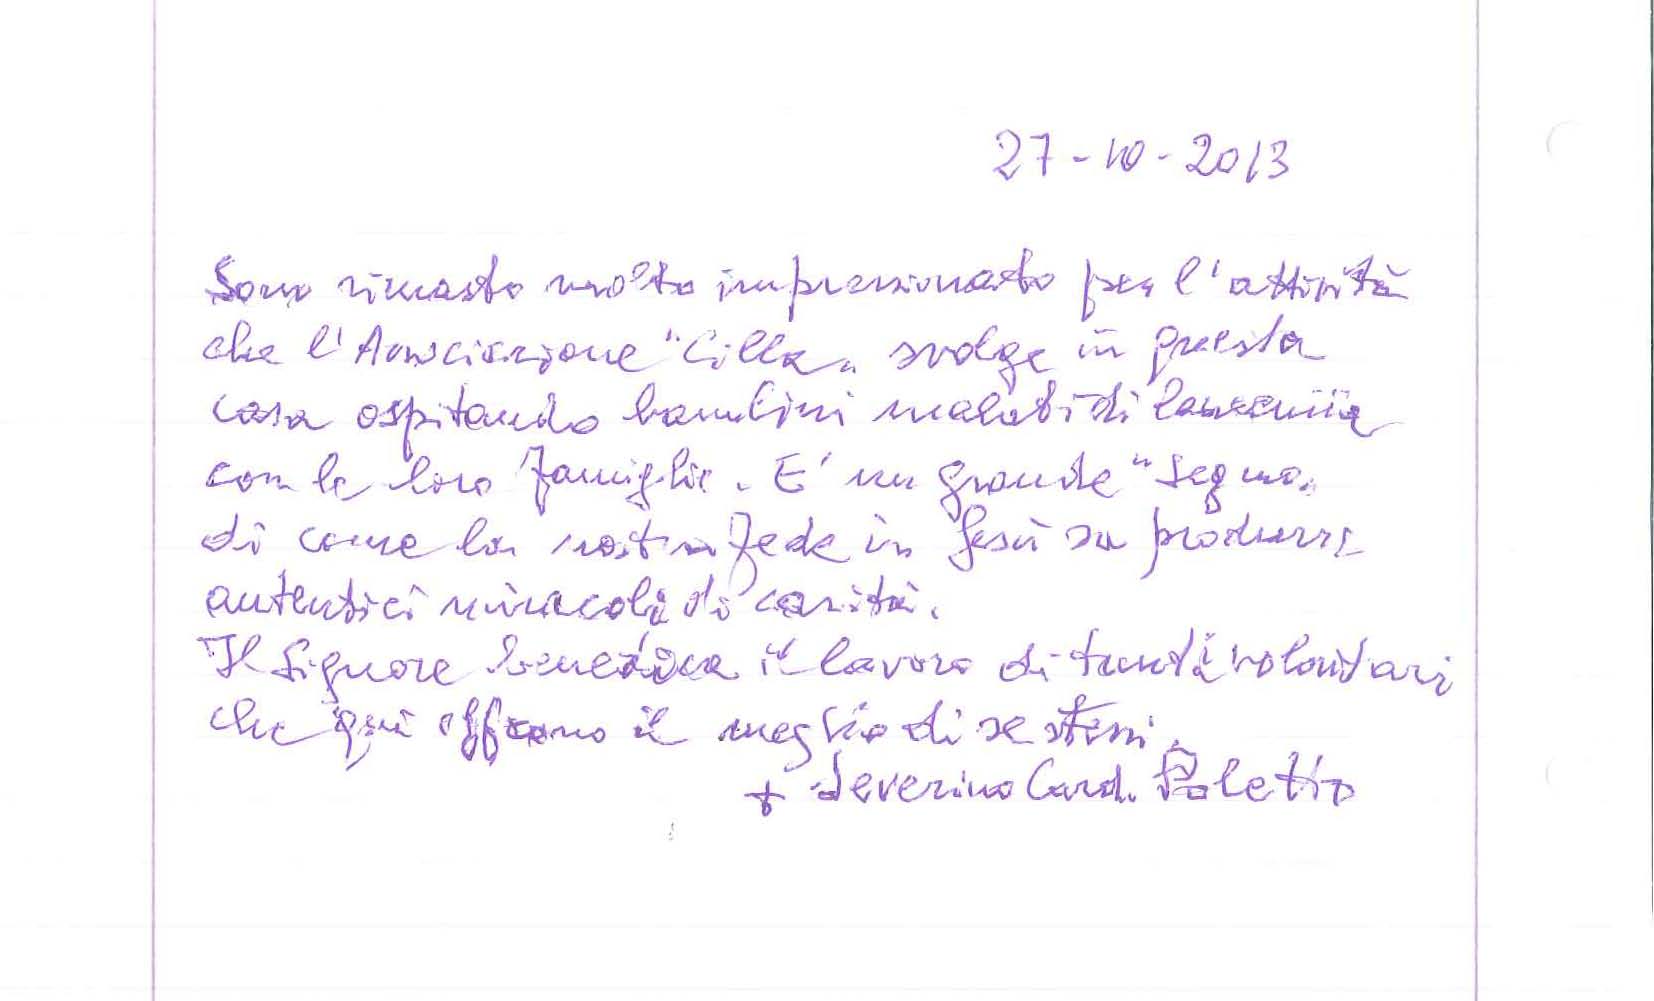 27-10-2013
Sono rimasto molto impressionato per l'attività
che l'Associazione "Cilla" svolge in questa
casa ospitando bambini malati di leucemia
con le loro famiglie. E' un grande "segno"
di come la nostra fede in Gesù sa produrre
autentici miracoli di carità.
Il Signore benedica il lavoro di tanti volontari
che qui offrono il meglio di se stessi.
+ Severino Card. Poletto